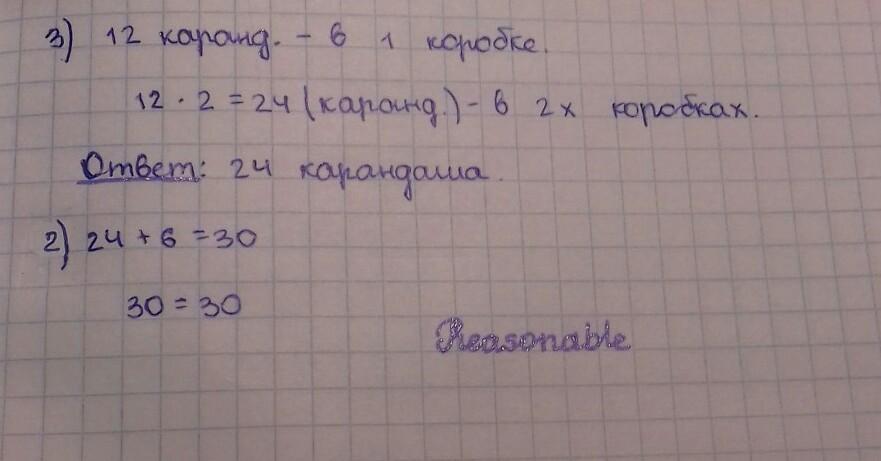 3) 12 каранд. - в 1 коробке.
12 · 2 = 24 (каранд.) - в 2х коробках.
Ответ: 24 карандаша.
2) 24 + 6 = 30
30 = 30
Reasonable